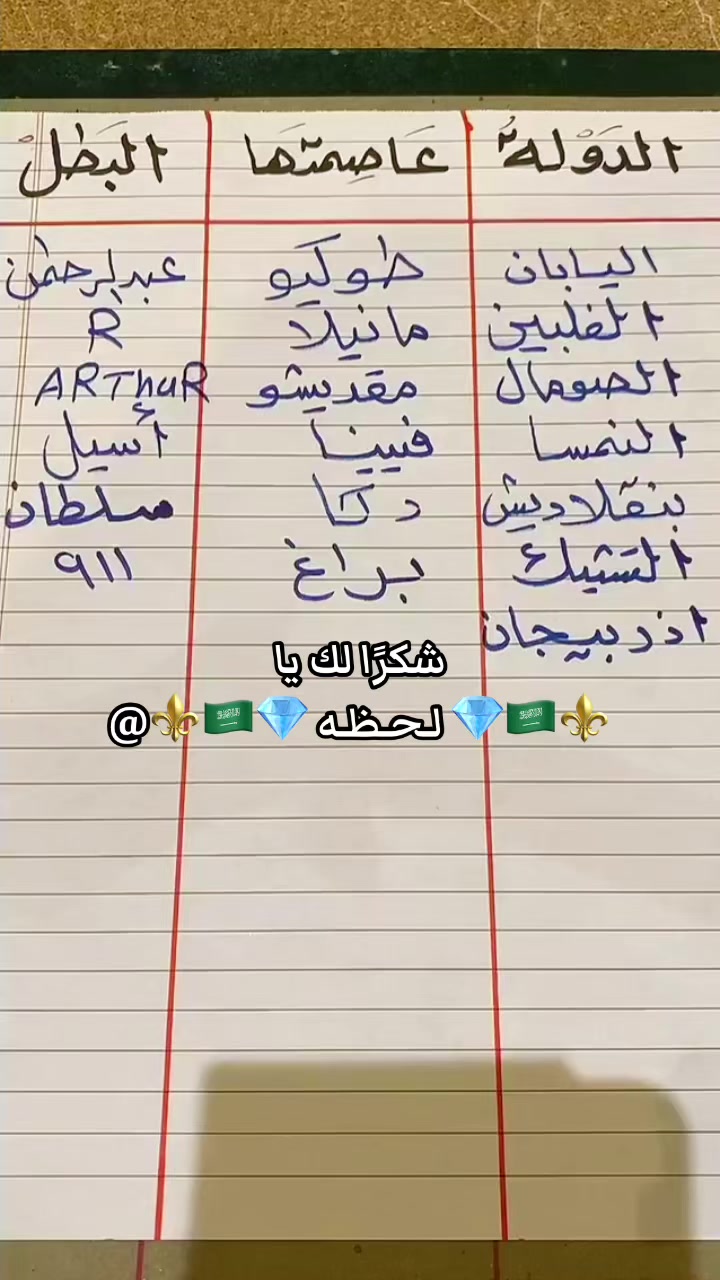 الدَوْلهُ عَاصِمتَها البَطل
اليابان طوكيو عبدالرحمن
الفلبين مانيلا R
الصومال مقديشو ARThuR
النمسا فيينا أسيل
بنقلاديش دكا سلطان
التشيك براغ ٩١١
اذربيجان
شكرًا لك يا
⚜️🇸🇦💎 لـحـظـه 💎🇸🇦⚜️@